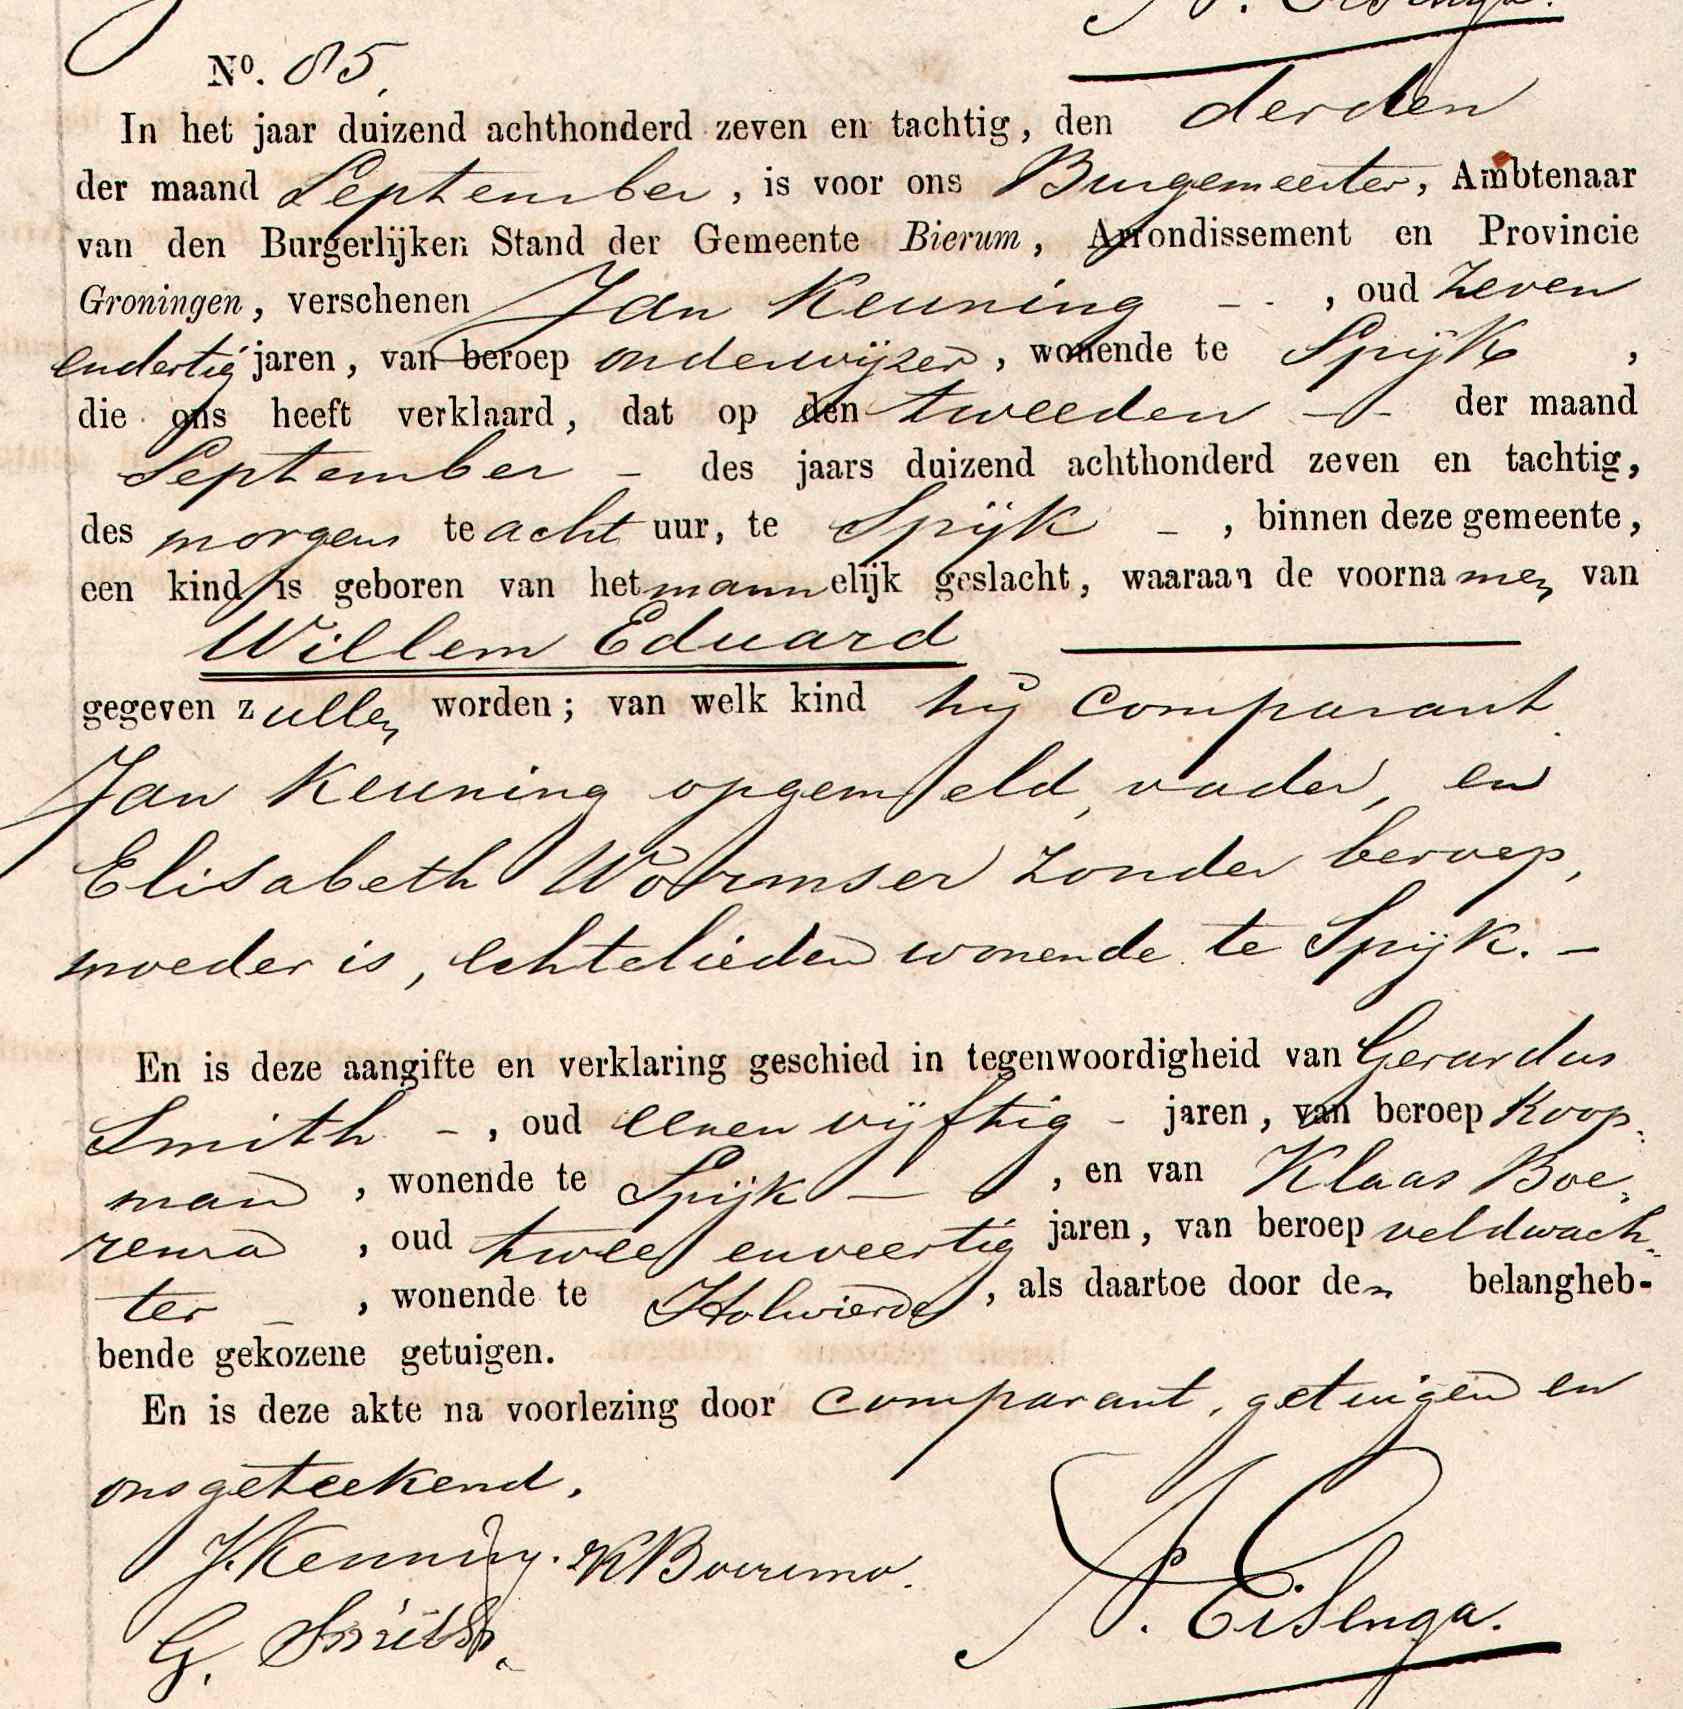 No. 85.
In het jaar duizend achthonderd zeven en tachtig, den derden
der maand September, is voor ons Burgemeester, Ambtenaar
van den Burgerlijken Stand der Gemeente Bierum, Arrondissement en Provincie
Groningen, verschenen Jan Keuning - -, oud zeven
endertig jaren, van beroep onderwijzer, wonende te Spijk,
die ons heeft verklaard, dat op den tweeden - - der maand
September - des jaars duizend achthonderd zeven en tachtig,
des morgens te acht uur, te Spijk -, binnen deze gemeente,
een kind is geboren van het mannelijk geslacht, waaraan de voornamen van
Willem Eduard
gegeven zullen worden; van welk kind hij comparant
Jan Keuning opgemeld, vader, en
Elisabeth Wormser zonder beroep,
moeder is, echtelieden wonende te Spijk. -
En is deze aangifte en verklaring geschied in tegenwoordigheid van Gerardus
Smith -, oud eenenvijftig - jaren, van beroep koop-
man, wonende te Spijk -, en van Klaas Boe-
rema, oud twee enveertig jaren, van beroep veldwach-
ter -, wonende te Holwierde, als daartoe door den belangheb-
bende gekozene getuigen.
En is deze akte na voorlezing door comparant, getuigen en
ons geteekend.
J. Keuning. K Boerema.
G. Smith.
Eisenga.